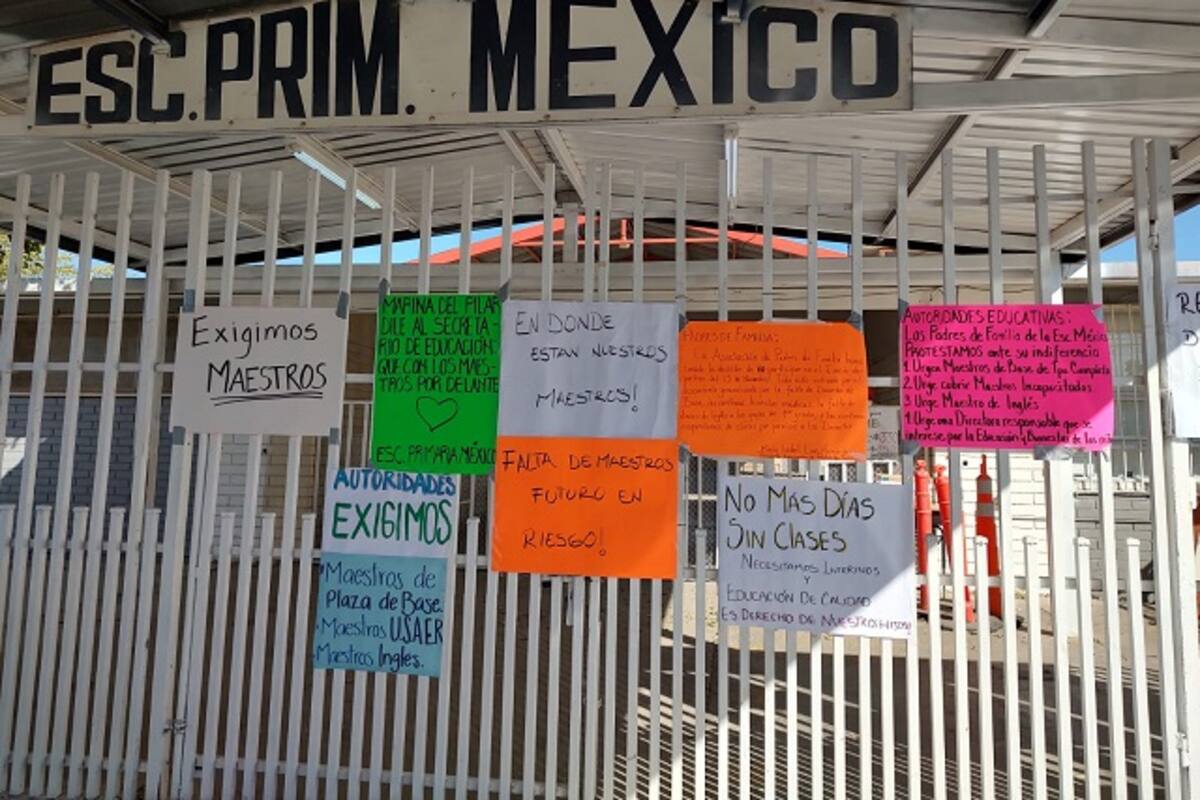 ESC. PRIM. MÉXICO
Exigimos
MAESTROS
MARINA DEL PILAR
DILE AL SECRETA-
RIO DE EDUCACIÓN:
QUE CON LOS MAES-
TROS POR DELANTE
ESC. PRIMARIA MÉXICO
AUTORIDADES
EXIGIMOS
Maestros de
Plaza de Base.
Maestros USAER
Maestros Ingles.
EN DONDE
ESTAN NUESTROS
MAESTROS!
FALTA DE MAESTROS
FUTURO EN
RIESGO!
PADRES DE FAMILIA:
La Asociación de Padres de Familia
NO MAS DÍAS
SIN CLASES
NECESITAMOS INTERINOS
Y
EDUCACIÓN DE CALIDAD
ES DERECHO DE NUESTROS HIJOS!
AUTORIDADES EDUCATIVAS:
Los Padres de Familia de la Esc. México
PROTESTAMOS ante su indiferencia
1. Urgen Maestros de Base de Tpo Completo
2. Urge cubrir Maestros Incapacitados.
3 Urge Maestro de Inglés
4. Urge una Directora responsable que se
interese por la Educación y Bienestar de los